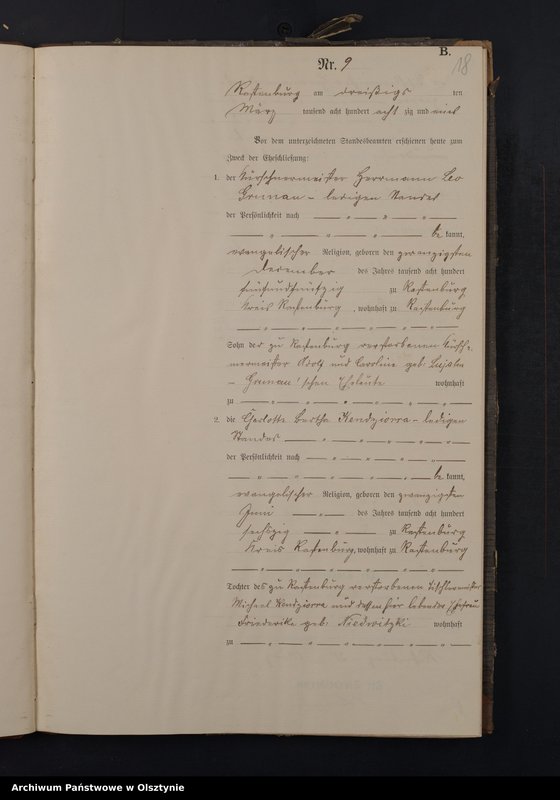 B.
Nr. 9
18
Rastenburg am dreißigs ten
März tausend acht hundert acht zig und
Vor dem unterzeichneten Standesbeamten erschienen heute zum
Zweck der Eheschließung:
1. der Kürschnermeister Herrmann Leo
Grunau – ledigen Standes
der Persönlichkeit nach
be kannt,
evangelischer Religion, geboren den zwanzigsten
Dezember des Jahres tausend acht hundert
fünfundfünfzig zu Rastenburg
Kreis Rastenburg, wohnhaft zu Rastenburg
Sohn der zu Rastenburg verstorbenen Kürsch-
nermeister Adolf und Caroline geb:
– Grunau'schen Eheleute wohnhaft
zu
2. die Charlotte Bertha Kendziorra – ledigen
Standes
der Persönlichkeit nach
be kannt,
evangelischer Religion, geboren den zwanzigsten
Juni des Jahres tausend acht hundert
sechszig zu Rastenburg
Kreis Rastenburg, wohnhaft zu Rastenburg
Tochter des zu Rastenburg verstorbenen Tischlermeister
Michael Kendziorra und dessen hier lebender Ehefrau
Friederike geb: Niedwitzki wohnhaft
zu
Archiwum Państwowe w Olsztynie